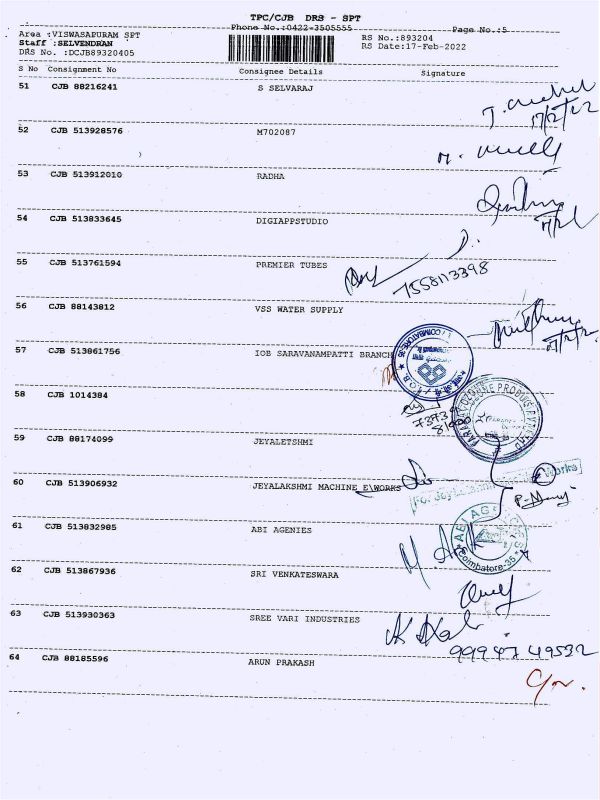 TPC/CJB DRS - SPT
Phone No.:0422-3505555 Page No.:5
Area :VISWASAPURAM SPT RS No.:893204
Staff :SELVENDRAN RS Date:17-Feb-2022
DRS No. :DCJB89320405
S No Consignment No Consignee Details Signature
51 CJB 88216241 S SELVARAJ
17/2/22
52 CJB 513928576 M702087
53 CJB 513912010 RADHA
54 CJB 513833645 DIGIAPPSTUDIO
55 CJB 513761594 PREMIER TUBES
7558113398
56 CJB 88143812 VSS WATER SUPPLY
57 CJB 513861756 IOB SARAVANAMPATTI BRANCH
58 CJB 1014384
59 CJB 88174099 JEYALETSHMI
60 CJB 513906932 JEYALAKSHMI MACHINE E\WORKS
61 CJB 513832985 ABI AGENIES
Coimbatore-35
62 CJB 513867936 SRI VENKATESWARA
63 CJB 513930363 SREE VARI INDUSTRIES
9994749532
64 CJB 88185596 ARUN PRAKASH